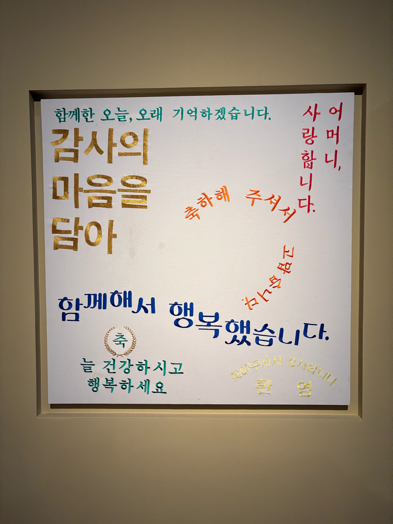 함께한 오늘, 오래 기억하겠습니다.
감사의
마음을
담아
어머니,
사랑합니다.
축하해 주셔서 고맙습니다.
함께해서 행복했습니다.
축
늘 건강하시고
행복하세요
환 영